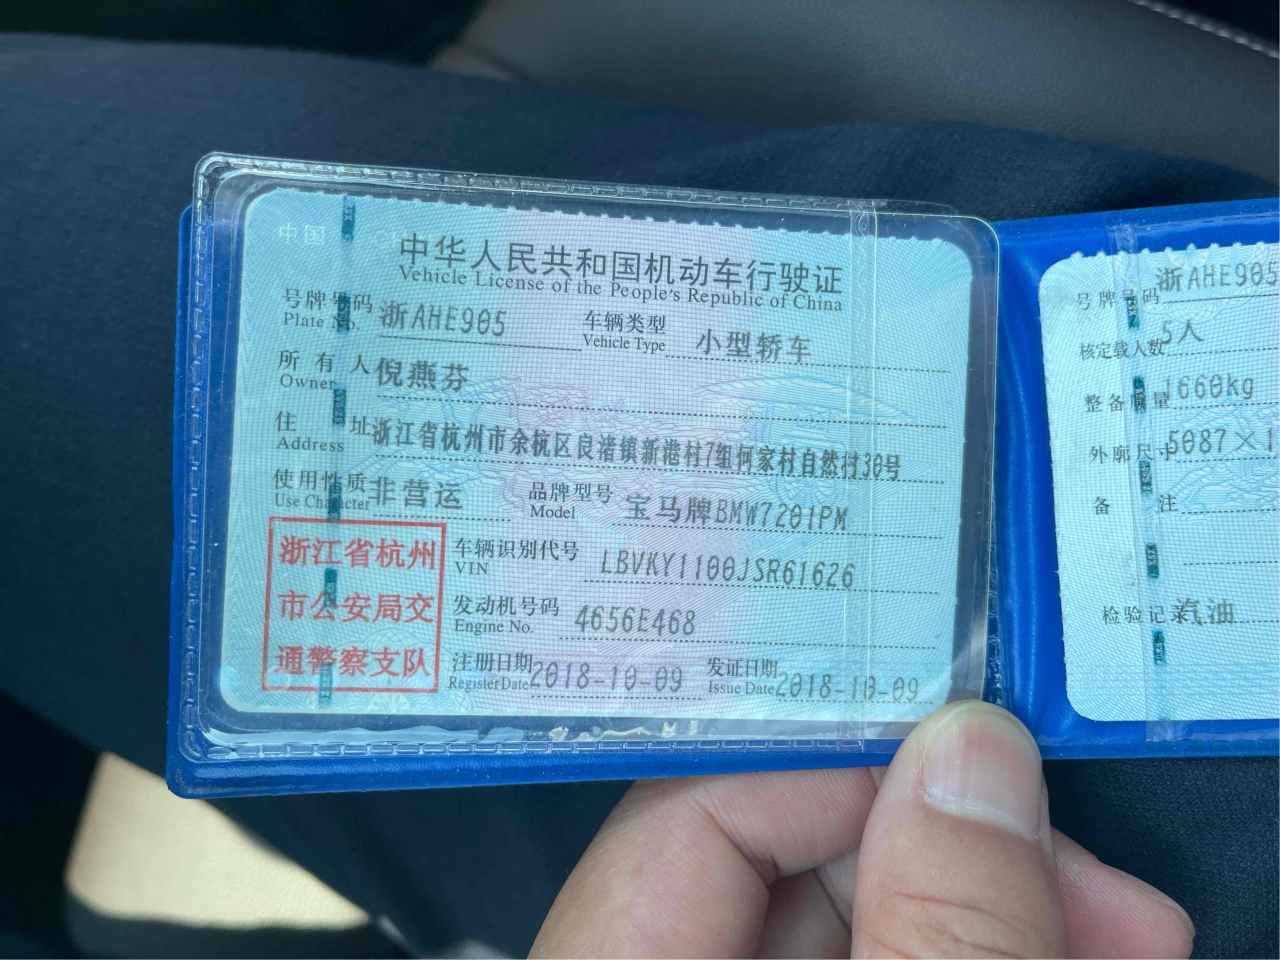 中国
中华人民共和国机动车行驶证
Vehicle License of the People's Republic of China
号牌号码 浙AHE905 车辆类型 小型轿车
Plate No. Vehicle Type
所有人 倪燕芬
Owner
住址 浙江省杭州市余杭区良渚镇新港村7组何家村自然村30号
Address
使用性质 非营运 品牌型号 宝马牌BMW7201PM
Use Character Model
浙江省杭州
市公安局交
通警察支队
车辆识别代号 LBVKY1100JSR61626
VIN
发动机号码 4656E468
Engine No.
注册日期 2018-10-09 发证日期 2018-10-09
Register Date Issue Date
号牌号码 浙AHE905
核定载人数 5人
整备质量 1660kg
外廓尺寸 5087×1
备注
检验记 汽油